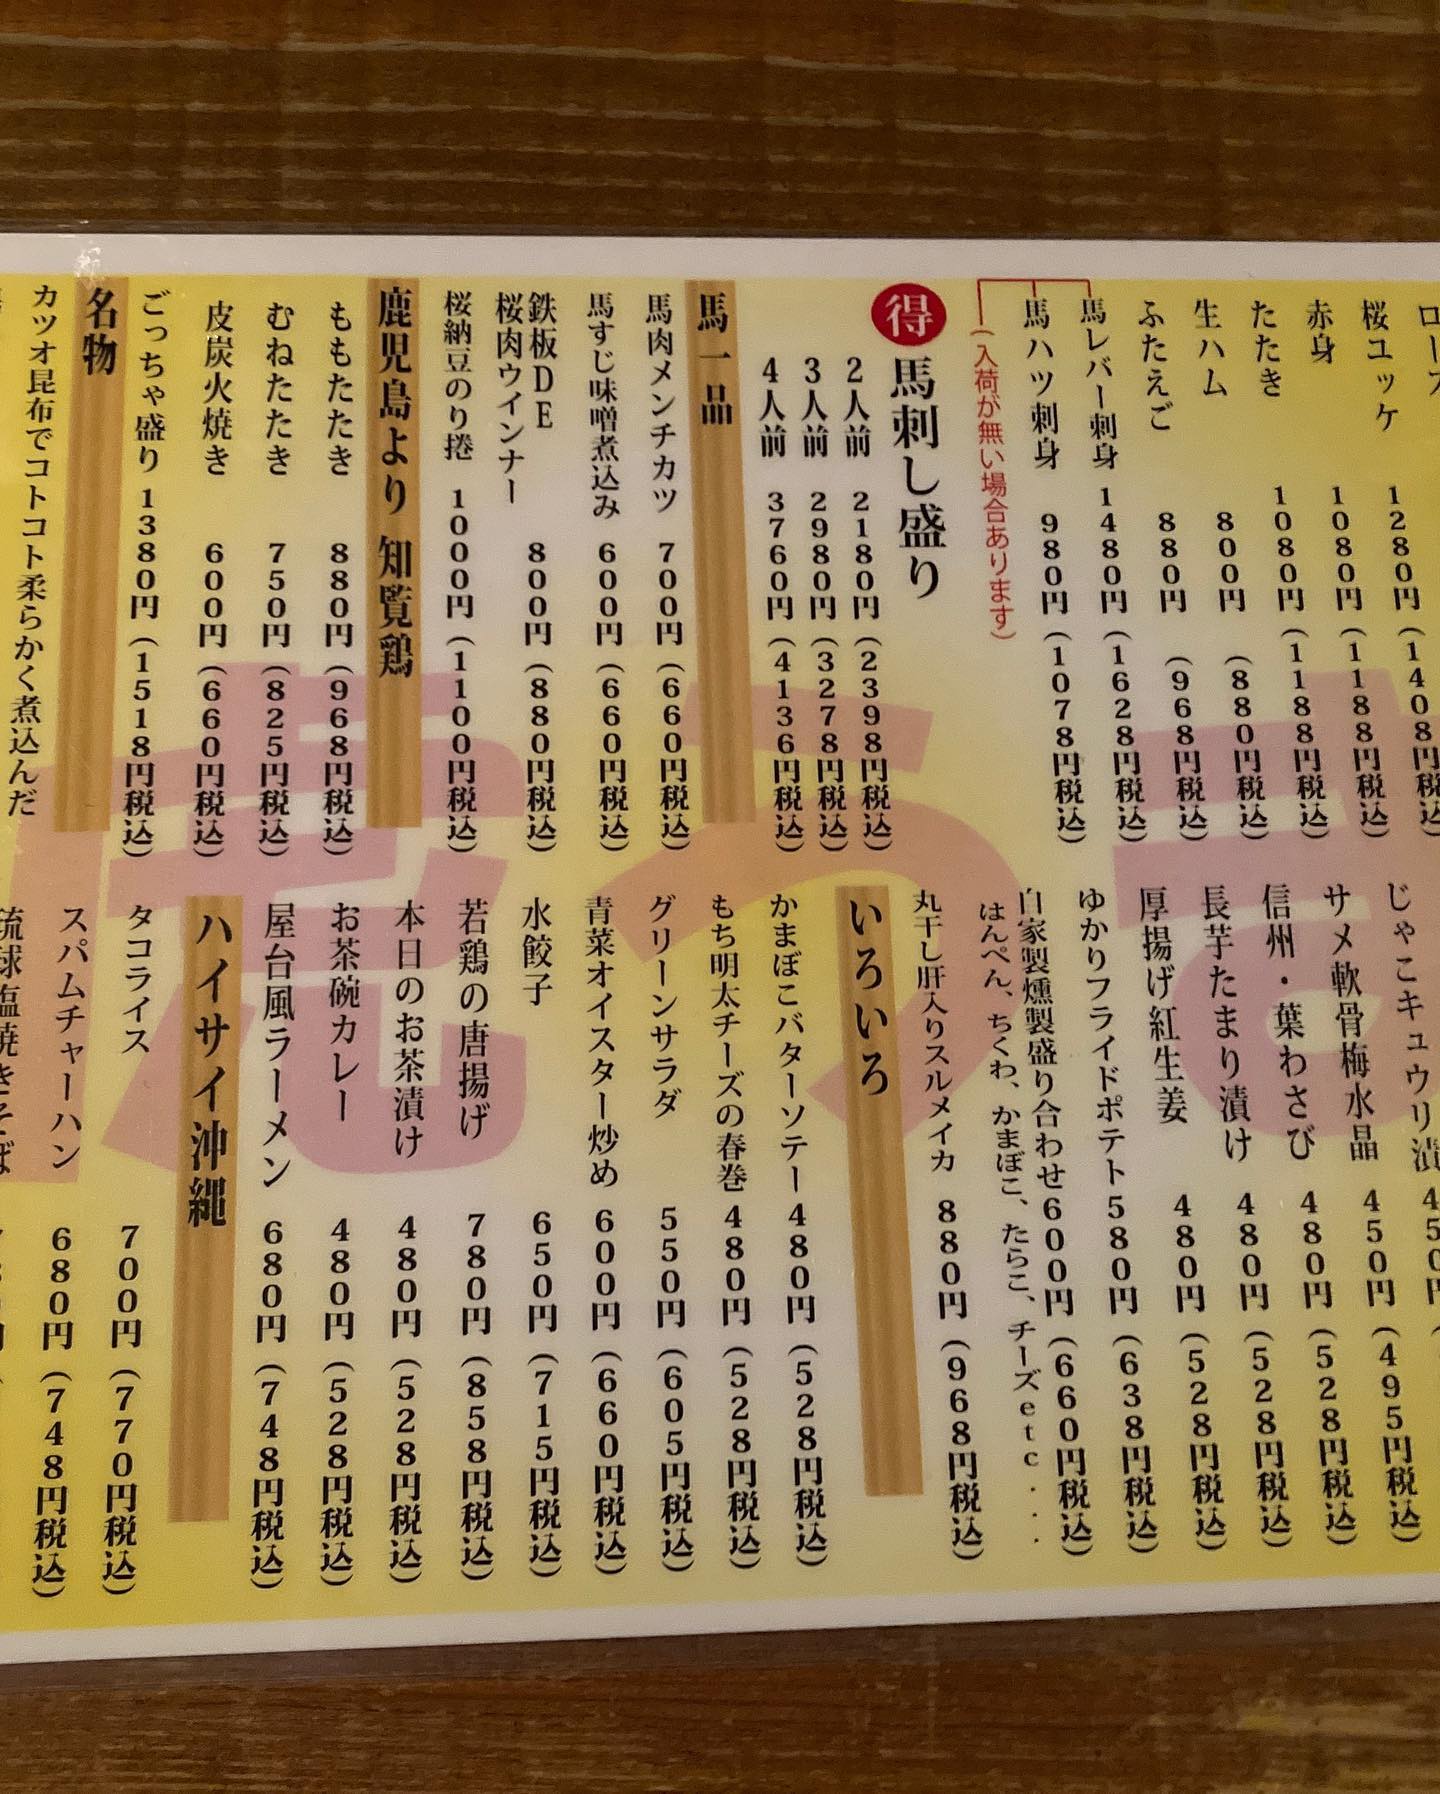 1280円(1408円税込)
桜ユッケ 1080円(1188円税込)
赤身 1080円(1188円税込)
たたき
生ハム 800円(880円税込)
ふたえご 880円(968円税込)
馬レバー刺身 1480円(1628円税込)
馬ハツ刺身 980円(1078円税込)
(入荷が無い場合あります)
得 馬刺し盛り
2人前 2180円(2398円税込)
3人前 2980円(3278円税込)
4人前 3760円(4136円税込)
馬一品
馬肉メンチカツ 700円(660円税込)
馬すじ味噌煮込み 600円(660円税込)
鉄板DE
桜肉ウインナー 800円(880円税込)
桜納豆のり捲 1000円(1100円税込)
鹿児島より 知覧鶏
ももたたき 880円(968円税込)
むねたたき 750円(825円税込)
皮炭火焼き 600円(660円税込)
ごっちゃ盛り 1380円(1518円税込)
名物
カツオ昆布でコトコト柔らかく煮込んだ
じゃこキュウリ漬
サメ軟骨梅水晶 450円(495円税込)
信州・葉わさび 480円(528円税込)
長芋たまり漬け 480円(528円税込)
厚揚げ紅生姜 480円(528円税込)
ゆかりフライドポテト 580円(638円税込)
自家製燻製盛り合わせ 600円(660円税込)
はんぺん、ちくわ、かまぼこ、たらこ、チーズetc...
丸干し肝入りスルメイカ 880円(968円税込)
いろいろ
かまぼこバターソテー 480円(528円税込)
もち明太チーズの春巻 480円(528円税込)
グリーンサラダ 550円(605円税込)
青菜オイスター炒め 600円(660円税込)
水餃子 650円(715円税込)
若鶏の唐揚げ 780円(858円税込)
本日のお茶漬け 480円(528円税込)
お茶碗カレー 480円(528円税込)
屋台風ラーメン 680円(748円税込)
ハイサイ沖縄
タコライス 700円(770円税込)
スパムチャーハン 680円(748円税込)
琉球塩焼きそば